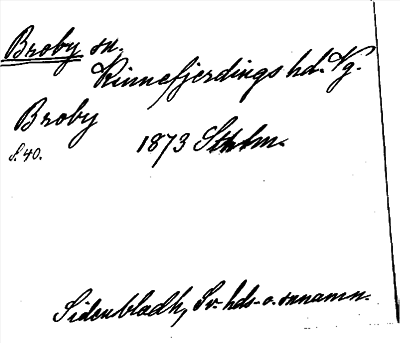 Broby sn.
Kinnefjerdings hd. Vg.
Broby
s. 40.
1873 Sthlm.
Sidenbladh, Sv. hds- o. snnamn.